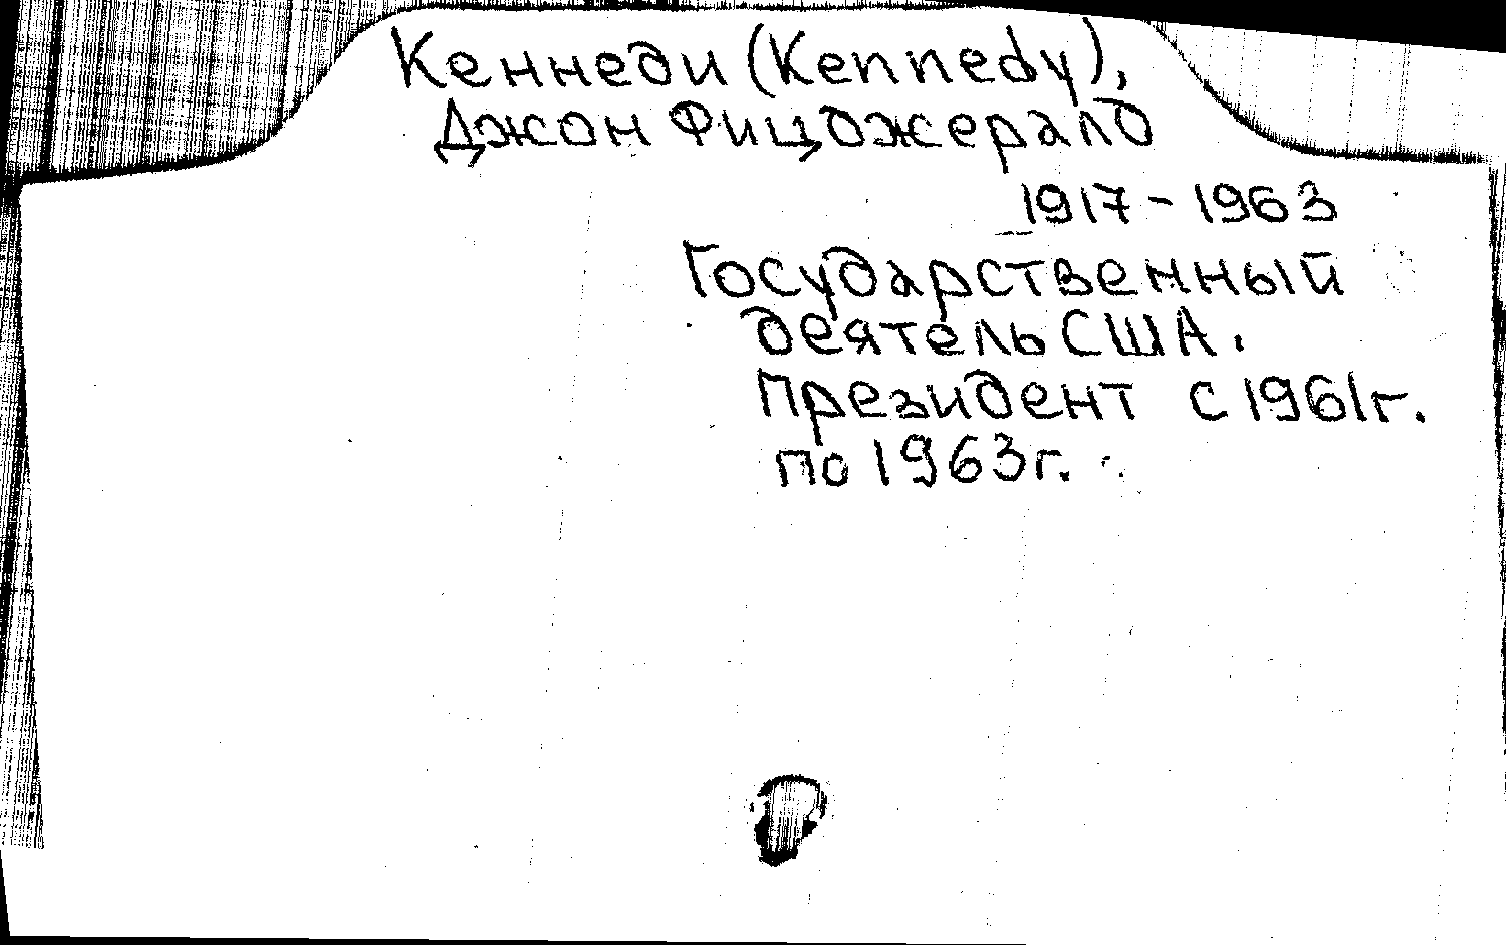 Кеннеди (Kennedy),
Джон Фицджералд
1917-1963
Государственный
деятель США.
Президент с 1961г.
по 1963г.